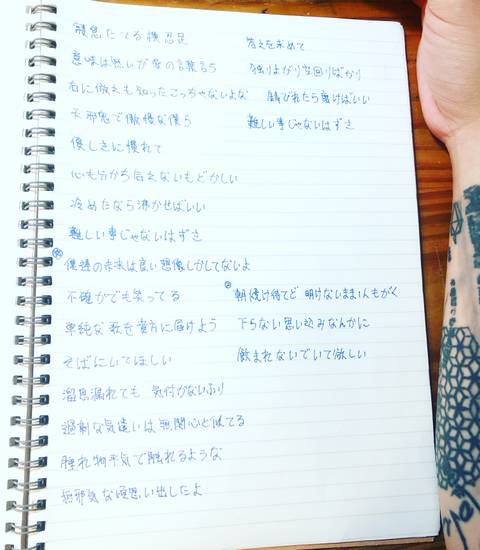 寝息たてる横
意味は無しが
右に倣えも知ったこっちゃないよな
天邪鬼で傲慢な僕ら
優しさに慣れて
心も分から合えないもどかしい
冷めたなら沸かせばいい
難しい事じゃないはずさ
僕達の未来は良い想像しかしてないよ
不確かでも笑ってる
単純な歌を貴方に届けよう
そばにいてほしい
溜息漏れても 気付かないふり
過剰な気遣いは無関心と似てる
腫れ物平気で触れるような
無邪気な 思い出したよ
答えを求めて
独りよがり空回りばかり
錆びれたら磨けばいい
難しい事じゃないはずさ
朝焼け待てど 明けないまま1人もがく
下らない思い込みなんかに
飲まれないでいて欲しい